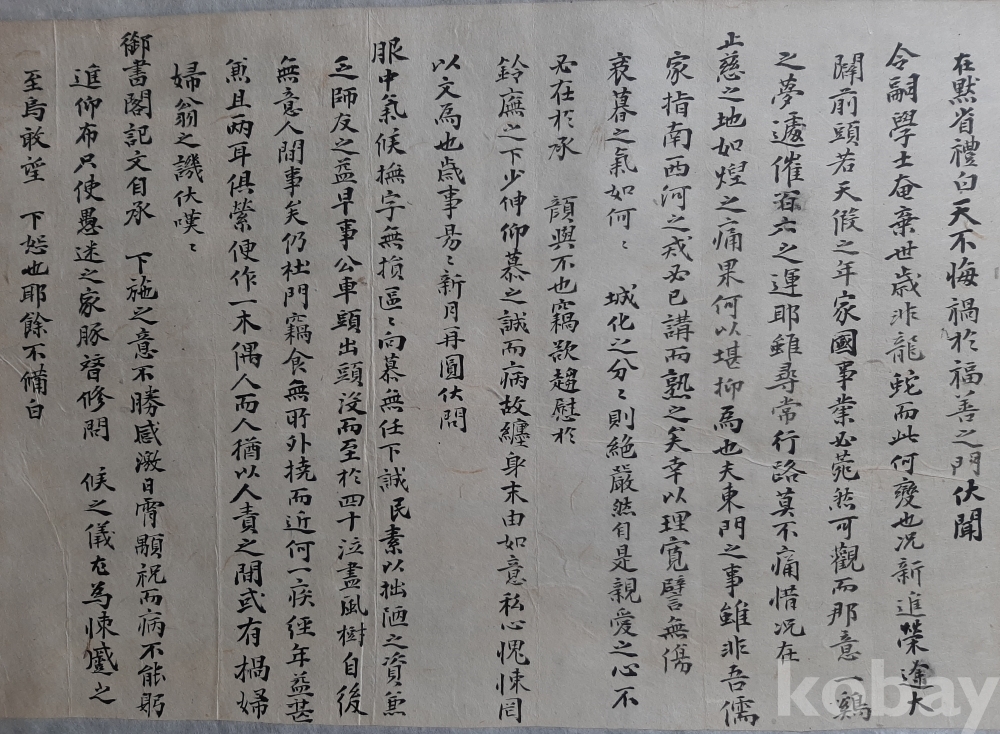 在默省禮白天不悔禍於福善之門伏聞
令嗣學士奄棄世歲非龍蛇而此何變也況新進榮途大
闢前頭若天假之年家國事業必菀然可觀而那意一鷄
之夢遽催百六之運耶雖尋常行路莫不痛惜況在
止慈之地如燬之痛果何以堪抑為也夫東門之事雖非吾儒
家指南西河之戎必已講而熟之矣幸以理寬譬無傷
衰暮之氣如何〻 城化之分〻則絶嚴然自是親愛之心不
必在於承 顔與不也竊欲趨慰於
鈴廡之下少伸仰慕之誠而病故纏身末由如意私心愧悚罔
以文為也歲事易〻新月再圓伏問
服中氣候撫字無損區〻向慕無任下誠民素以拙陋之資兼
乏師友之益早事公車頭出頭没而至於四十泣盡風樹自後
無意人間事矣仍杜門竊食無所外撓而近何一疾經年益甚
兼且兩耳俱縈便作一木偶人而人猶以人責之間或有楇婦
婦翁之譏伏嘆〻
御書閣記文自承 下施之意不勝感激日宵顒祝而病不能躬
進仰布只使愚迷之家豚替修問 候之儀尤為悚蹙之
至烏敢望 下恕也耶餘不備白
kobay